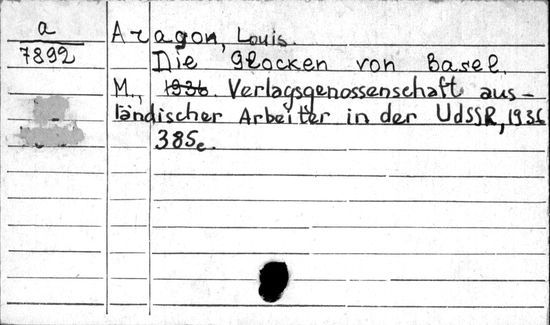 a
7892
Aragon, Louis.
Die Glocken von Basel.
M., 1936. Verlagsgenossenschaft aus-
ländischer Arbeiter in der UdSSR, 1936
385 e.